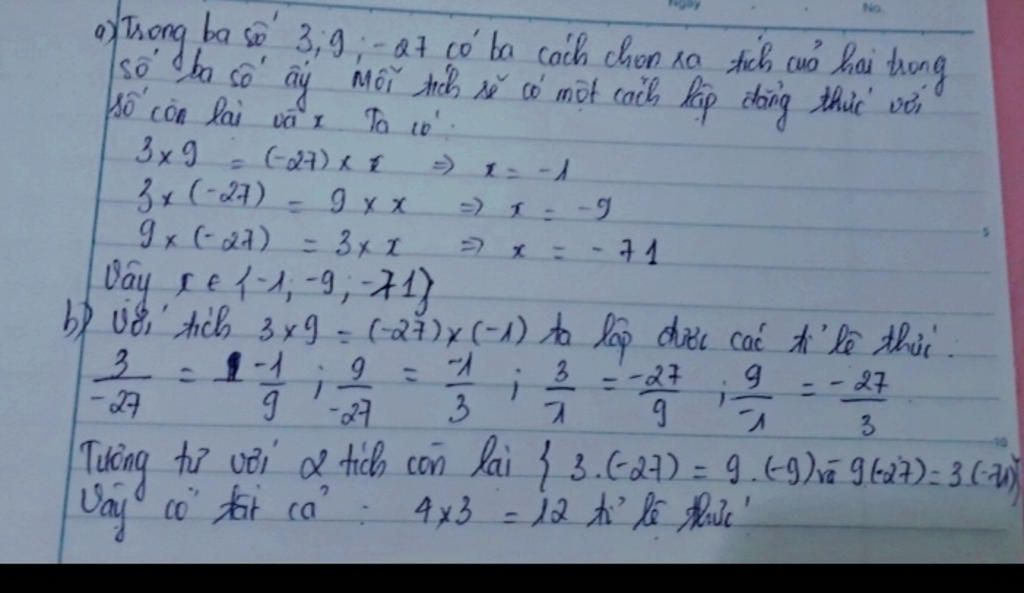 Ngày No.
a) Trong ba số 3; 9; -27 có ba cách chọn ra tích của hai trong
số ba số ấy Mỗi tích sẽ có một cách lập đẳng thức với
số còn lại và x Ta có:
3 x 9 = (-27) x x => x = -1
3 x (-27) = 9 x x => x = -9
9 x (-27) = 3 x x => x = - 71
Vậy x ∈ {-1; -9; -71}
b) Với tích 3 x 9 = (-27) x (-1) ta lập được các tỉ lệ thức:
3/-27 = -1/9 ; 9/-27 = -1/3 ; 3/-1 = -27/9 ; 9/-1 = -27/3
Tương tự với 2 tích còn lại { 3.(-27) = 9.(-9) và 9(-27) = 3(-71)}
Vậy có tất cả : 4 x 3 = 12 tỉ lệ thức